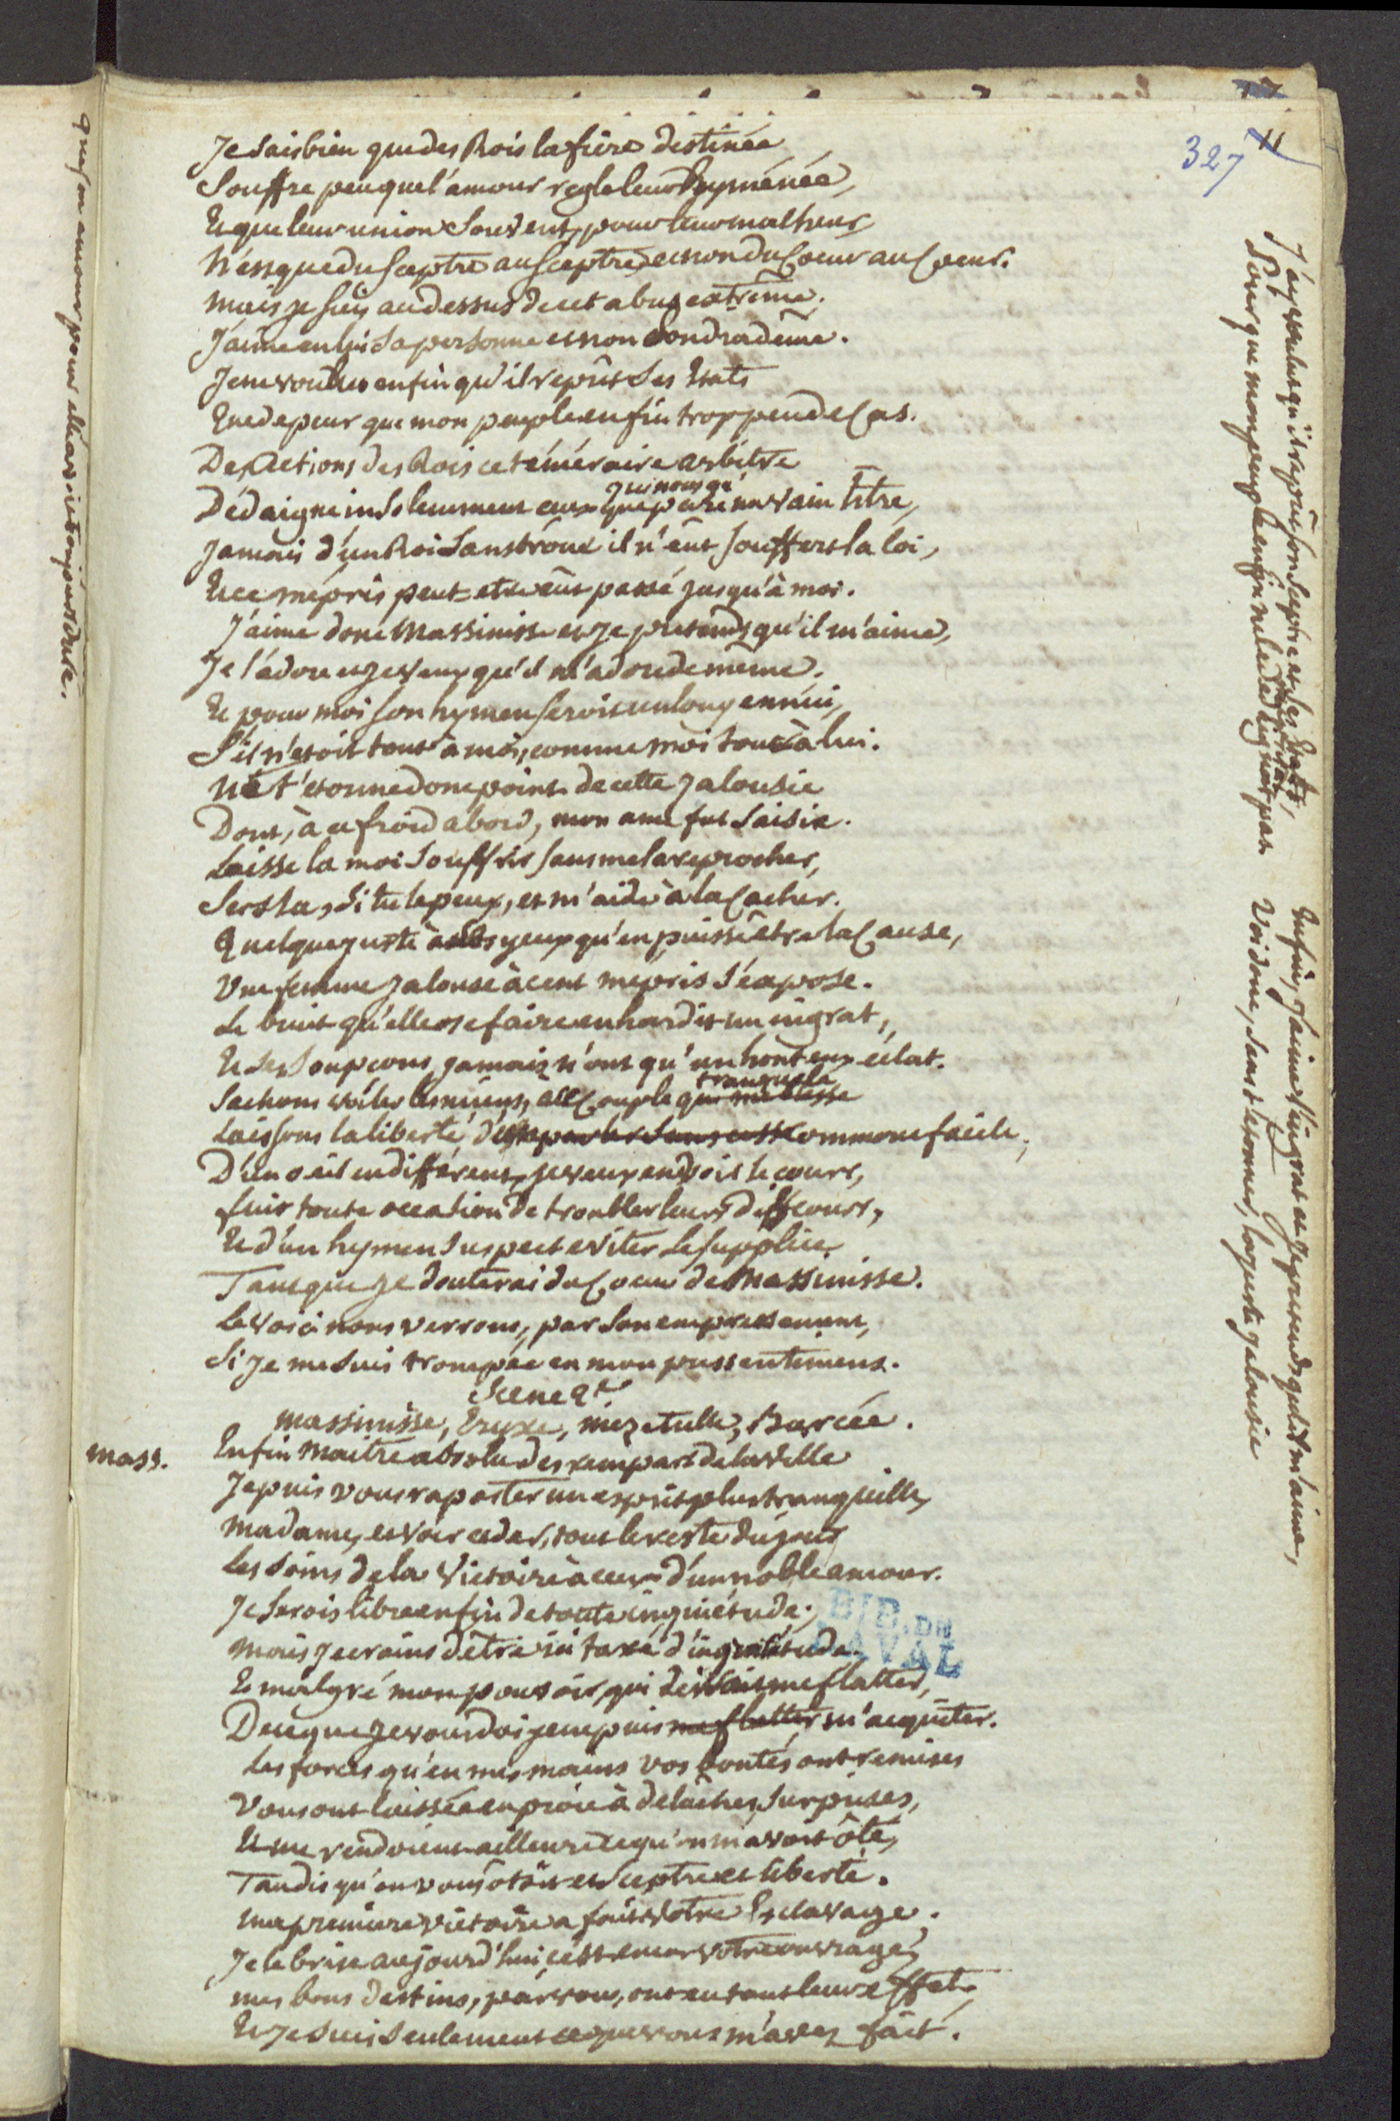 327
11
Je sais bien que des Rois la fiere destinée
Souffre peu que l'amour regle leur hyménée,
Et que leur union souvent, pour leur malheur,
N'est que du sceptre au sceptre et non du Coeur au Coeur.
Mais je suis au dessus de cet abus extreme.
J'aime en lui sa personne et non son diademe.
Je ne voulus enfin qu'il reprit ses Etats
Que de peur que mon peuple en fin trop peu de Cas.
Des Actions des Rois ce téméraire arbitre
Dédaigne insolemment ceux qui n'ont qu'un vain titre,
Jamais d'un Roi sans trône il n'eut souffert la loi,
Et ce mépris peut-etre eût passé jusqu'à moi.
J'aime donc Massinisse et je pretends qu'il m'aime,
Je l'adore et je veux qu'il m'adore de meme.
Et pour moi son hymen seroit un long ennui,
S'il n'etoit tout à moi, comme moi tout à lui.
Ne t'etonne donc point de cette jalousie
Dont, à ce froid abord, mon ame fut saisie.
Laisse la moi souffrir sans me la reprocher,
Sers la, si tu le peux, et m'aide à la Cacher.
Quelque juste à ses yeux qu'en puisse être la Cause,
Une femme jalouse à cent mepris s'expose.
Le bruit qu'elle ose faire enhardit un ingrat,
Et ses soupçons jamais n'ont qu'un honteux éclat.
tranquile
Sachons voiler les miens, à ce Couple qui me blesse
Laissons la liberté d'un commerce facile,
D'un oeil indifférent je veux en voir le cours,
fuir toute occasion de troubler leurs discours,
Et d'un hymen suspect eviter le supplice
Tant que je douterai du Coeur de Massinisse.
Le voici nous verrons, par son empressement,
Si je me suis trompée en mon pressentiment.
Scene 2e
Massinisse, Eryxe, Mezetulle, Barcée.
Mass. Enfin Maitre absolu des remparts de la Ville
Je puis vous raporter un esprit plus tranquille,
Madame, et voir ceder, tout le reste du jour
Les soins de la Victoire à ceux d'un noble amour.
Je serois libre enfin de toute inquietude;
Mais je crains d'être ici taxé d'ingratitude,
Et malgré mon pouvoir, qui devroit me flatter,
De ce que je vous doi je ne puis me flatter m'acquiter.
Les forces qu'en mes mains vos bontés ont remises
Vous ont laissée en proie à de lâches surprises,
Et me rendoient ailleurs ce qu'on m'avoit ôté,
Tandis qu'on vous ôtoit et sceptre et liberté.
Ma premiere victoire a fait votre Esclavage.
Je le brise aujourd'hui c'est encor votre ouvrage,
Mes bons destins, par vous, ont eu tout leur effet,
Et je suis seulement ce que vous m'avez fait.
BIB. DE
LAVAL
J'ai voulu qu'il reprit son sceptre et ses Etats,
Pour que mon peuple enfin ne le dedaignat pas
Enfin, j'aime l'ingrat et je pretends qu'il m'aime,
Voi donc, sans t'etonner, la juste jalousie
que son amour pour elle